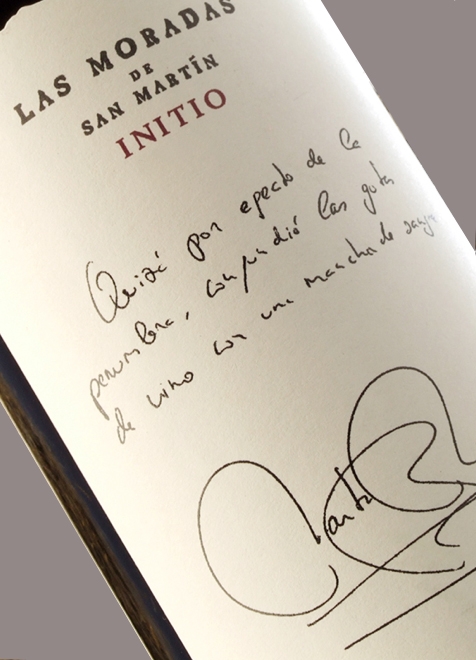 LAS MORADAS
DE
SAN MARTÍN
INITIO
Quizá por efecto de la
penumbra, confundió las gotas
de vino con una mancha de sangre